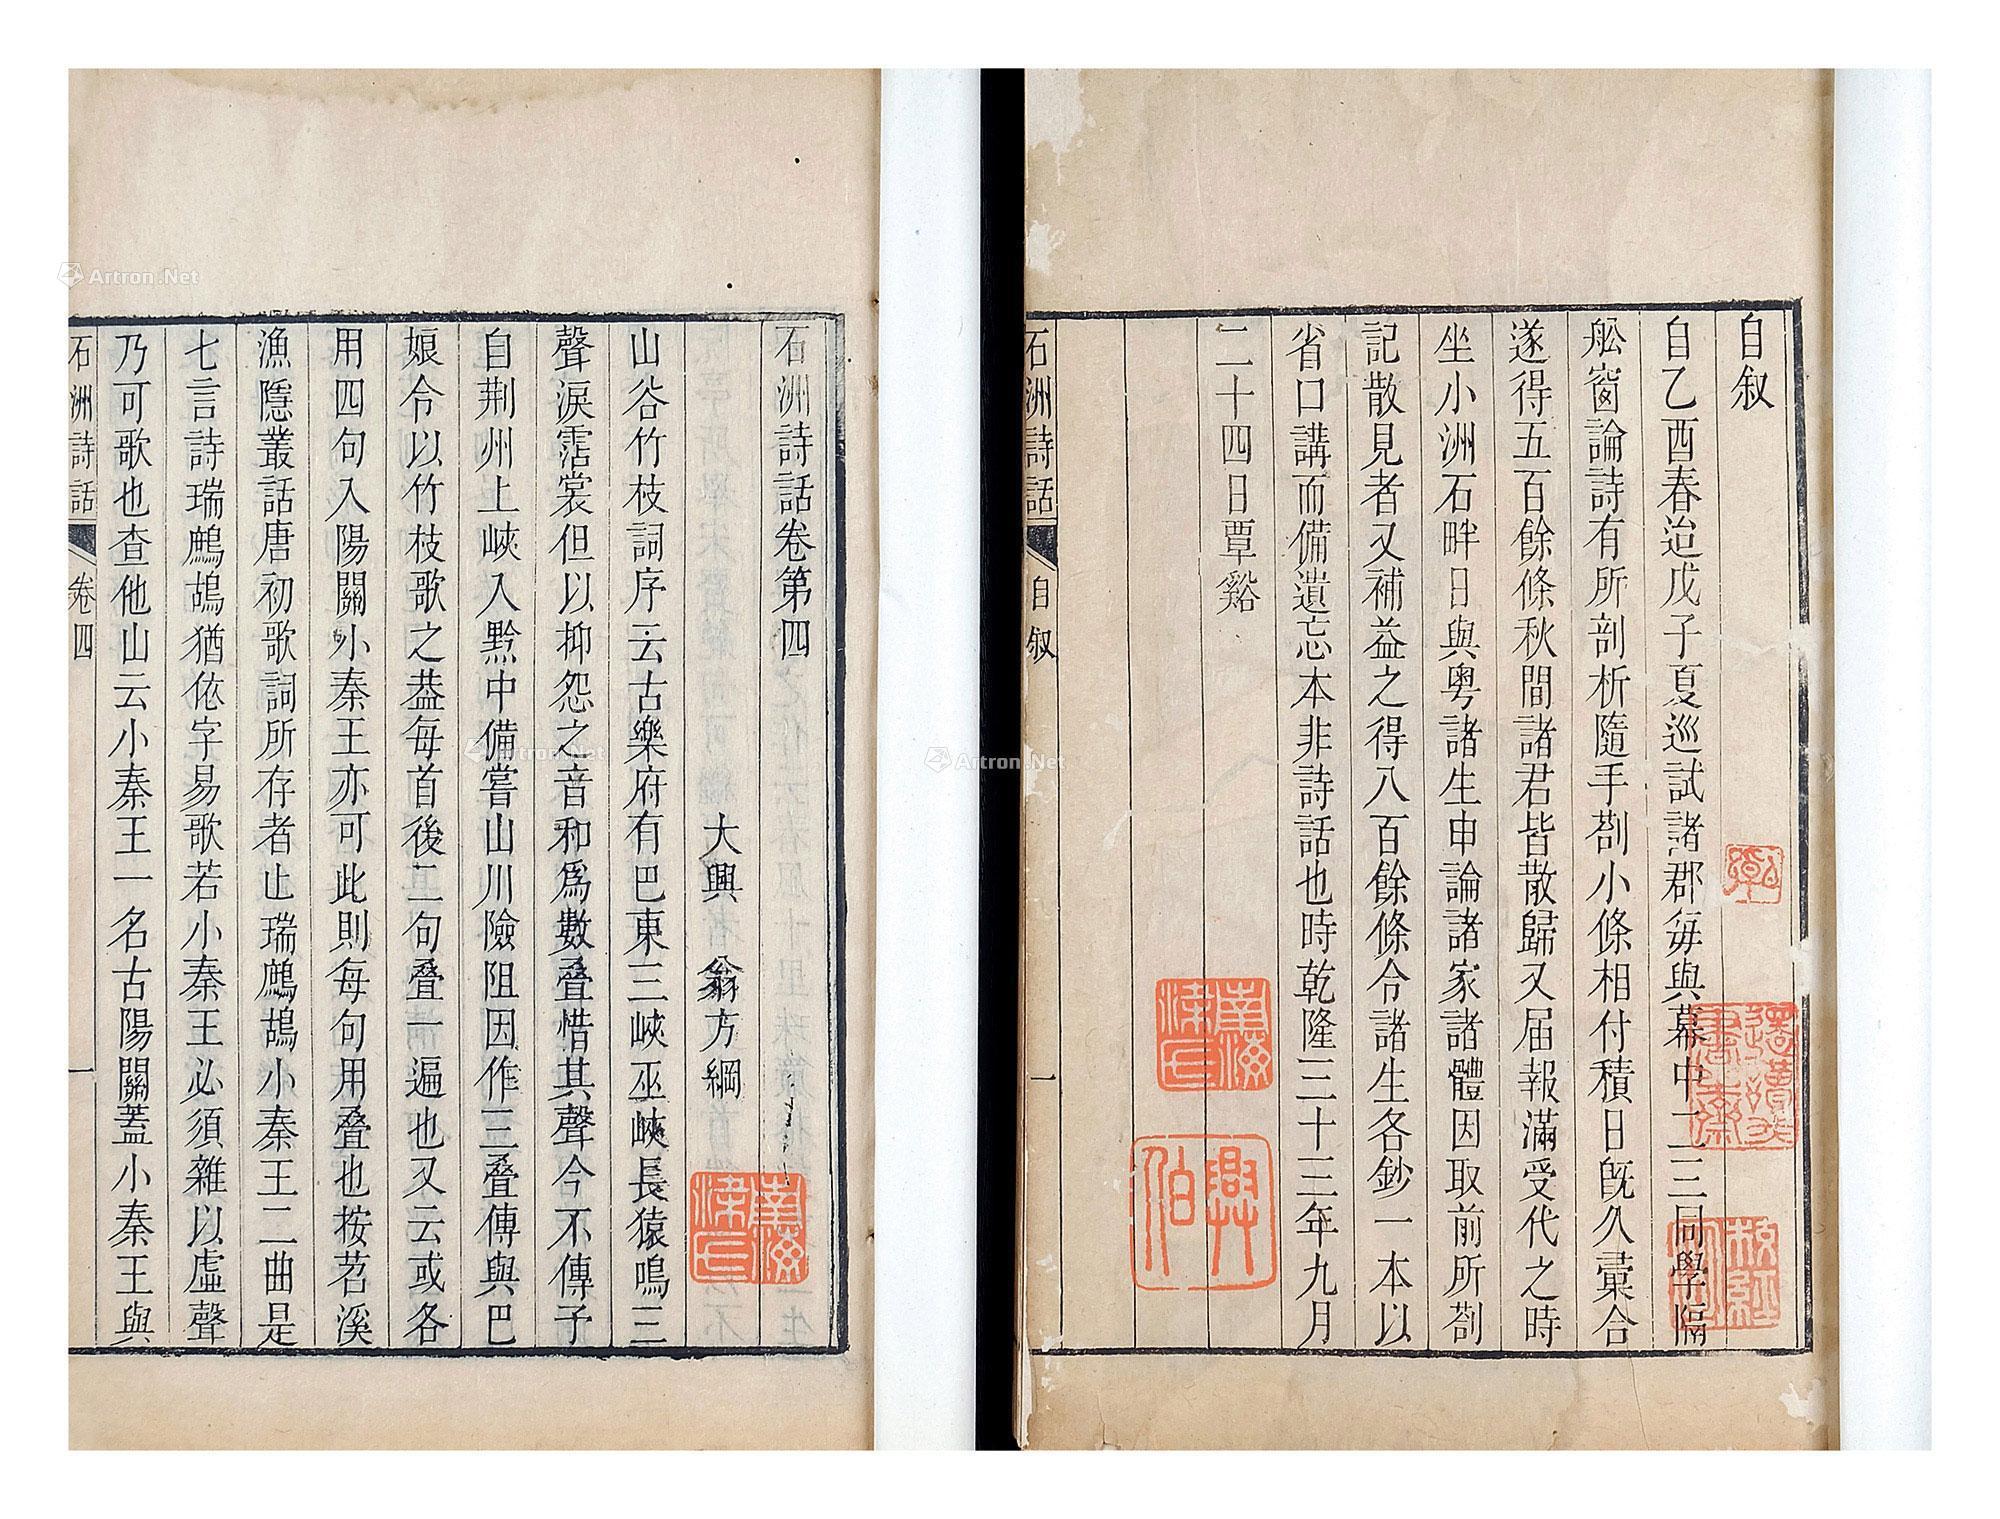 自叙
自乙酉春迨戊子夏巡試諸郡每與幕中二三同學隔
舩窗論詩有所剖析隨手劄小條相付積日旣久彙合
遂得五百餘條秋間諸君皆散歸又届報滿受代之時
坐小洲石畔日與粤諸生申論諸家諸體因取前所劄
記散見者又補益之得八百餘條令諸生各鈔一本以
省口講而備遺忘本非詩話也時乾隆三十三年九月
二十四日覃谿
石洲詩話 自叙 一
興伯
石洲詩話卷第四
大興 翁方綱
山谷竹枝詞序云古樂府有巴東三峽巫峽長猿鳴三
聲淚霑裳但以抑怨之音和爲數叠惜其聲今不傳予
自荆州上峽入黔中備嘗山川險阻因作三叠傳與巴
娘令以竹枝歌之葢每首後二句叠一遍也又云或各
用四句入陽關小秦王亦可此則每句用叠也按苕溪
漁隱叢話唐初歌詞所存者止瑞鷓鴣小秦王二曲是
七言詩瑞鷓鴣猶依字易歌若小秦王必須雜以虛聲
乃可歌也查他山云小秦王一名古陽關蓋小秦王與
石洲詩話 卷四 一
Artron.Net
Artron.Net
Artron.Net